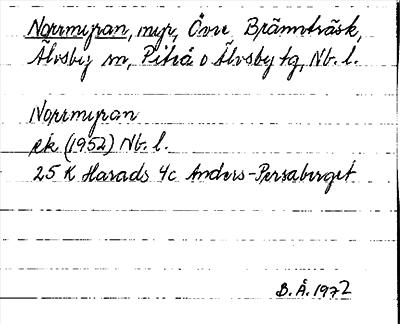 Norrmyran, myr, Övre Brännträsk,
Älvsby sn, Piteå o Älvsby tg, Nb. l.
Norrmyran
ek (1952) Nb. l.
25 K Harads 4c Anders-Persaberget
B. Å. 1972